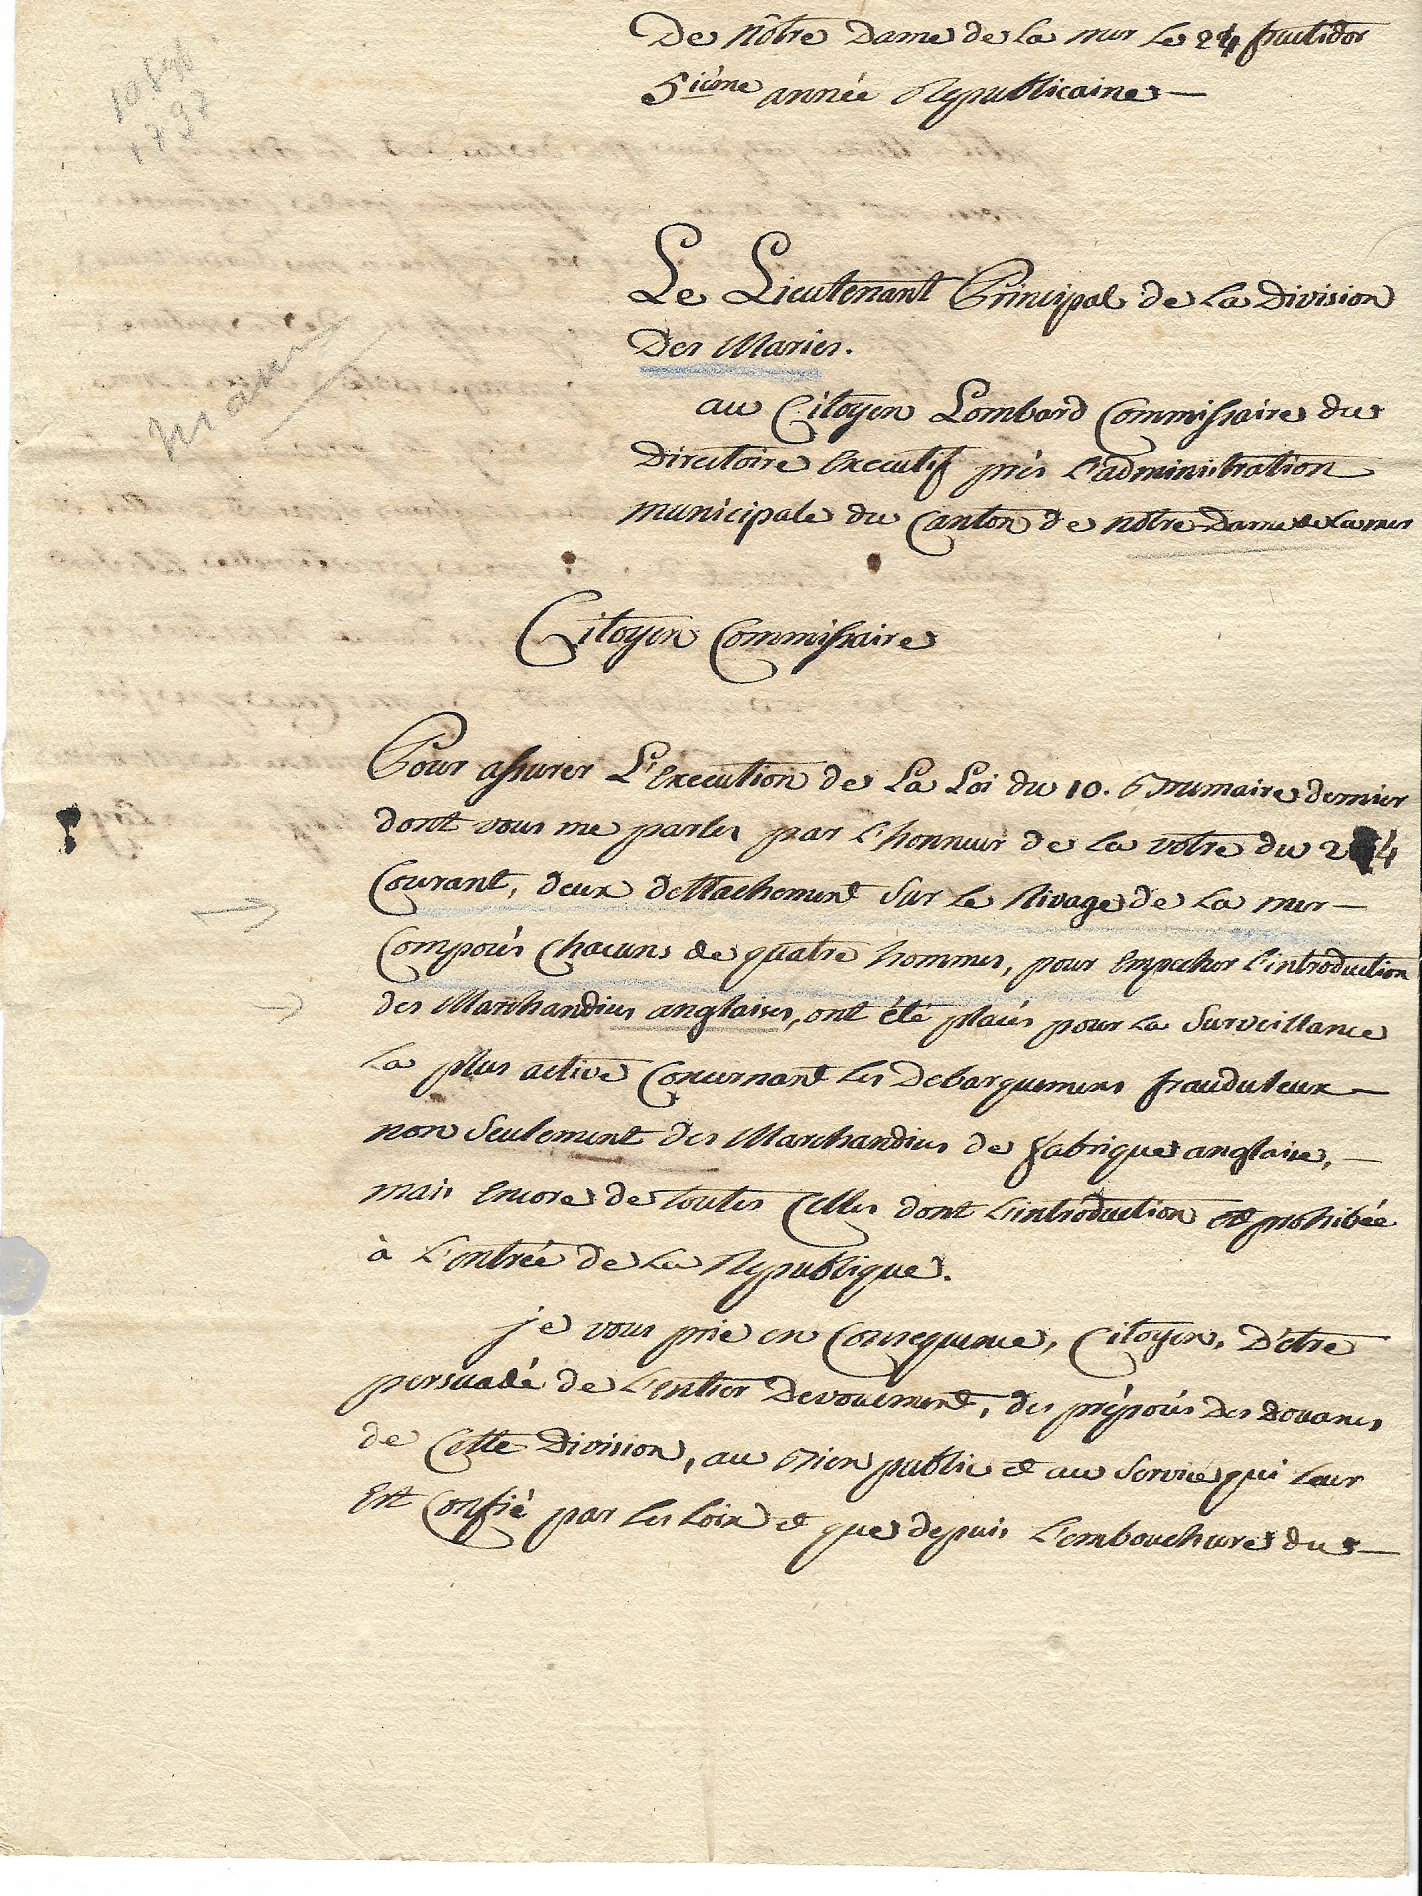 De Nôtre Dame de La mer Le 24 fructidor
5ième année Republicaine —
10 7bre
1797
Le Lieutenant Principal de La Division
Des Maries.
au Citoyen Lombard Commissaire du
Directoire Executif près L'administration
municipale du Canton de nôtre Dame de La mer
Citoyen Commissaire
Pour assurer L'Execution de La Loi du 10. Brumaire dernier
dont vous me parlez par l'honneur de La votre du 24
Courant, deux dettachement Sur Le Rivage de La mer —
Composés Chacuns de quatre hommes, pour Empecher l'introduction
des Marchandises anglaises, ont été placés pour La Surveillance
La plus active Concernant Les Debarquemens frauduleux —
non Seulement des Marchandises de fabrique anglaise, —
mais Encore de toutes Celles dont L'introduction est prohibée
à L'entrée de La Republique.
je vous prie en Consequence, Citoyen, D'etre
persuadé de L'entier Devouement, des préposés Des Douanes
de Cette Division, au Bien public et au Service qui Leur
Est Confié par Les Loix et que depuis L'embouchure du —